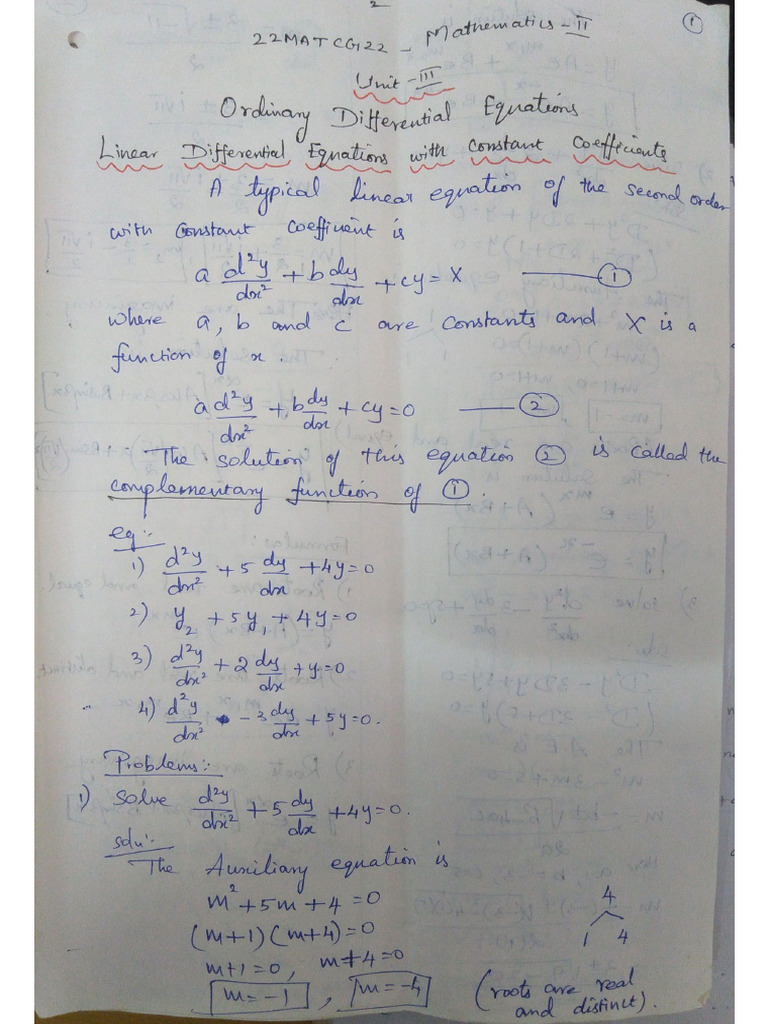 2
①
22MATCG122 - Mathematics - II
Unit - III
Ordinary Differential Equations
Linear Differential Equations with Constant Coefficients
A typical linear equation of the second order
with constant coefficient is
a d²y/dx² + b dy/dx + cy = X —— ①
where a, b and c are constants and X is a
function of x.
a d²y/dx² + b dy/dx + cy = 0 —— ②
The solution of this equation ② is called the
complementary function of ①.
eg:-
1) d²y/dx² + 5 dy/dx + 4y = 0
2) y₂ + 5y₁ + 4y = 0
3) d²y/dx² + 2 dy/dx + y = 0
4) d²y/dx² - 3 dy/dx + 5y = 0.
Problems:-
1) Solve d²y/dx² + 5 dy/dx + 4y = 0.
soln:-
The Auxiliary equation is
m² + 5m + 4 = 0
4
(m+1) (m+4) = 0
1 4
m+1 = 0, m+4 = 0
m = -1, m = -4
(roots are real
and distinct).